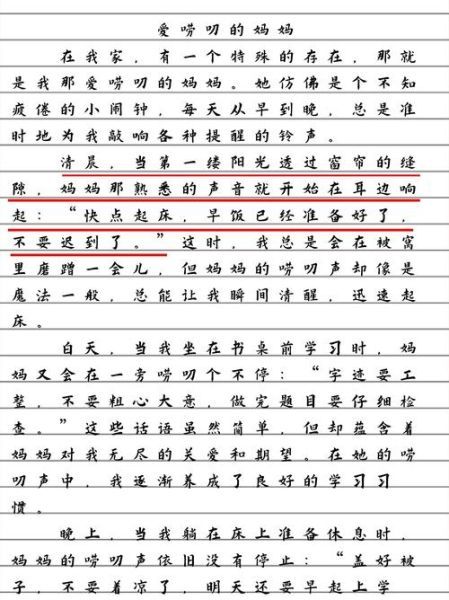 爱唠叨的妈妈
在我家，有一个特殊的存在，那就
是我那爱唠叨的妈妈。她仿佛是个不知
疲倦的小闹钟，每天从早到晚，总是准
时地为我敲响各种提醒的铃声。
清晨，当第一缕阳光透过窗帘的缝
隙，妈妈那熟悉的声音就开始在耳边响
起：“快点起床，早饭已经准备好了，
不要迟到了。”这时，我总是会在被窝
里磨蹭一会儿，但妈妈的唠叨声却像是
魔法一般，总能让我瞬间清醒，迅速起
床。
白天，当我坐在书桌前学习时，妈
妈又会在一旁唠叨个不停：“字迹要工
整，不要粗心大意，做完题目要仔细检
查。”这些话语虽然简单，但却蕴含着
妈妈对我无尽的关爱和期望。在她的唠
叨声中，我逐渐养成了良好的学习习
惯。
晚上，当我躺在床上准备休息时，
妈妈的唠叨声依旧没有停止：“盖好被
子，不要着凉了，明天还要早起上学